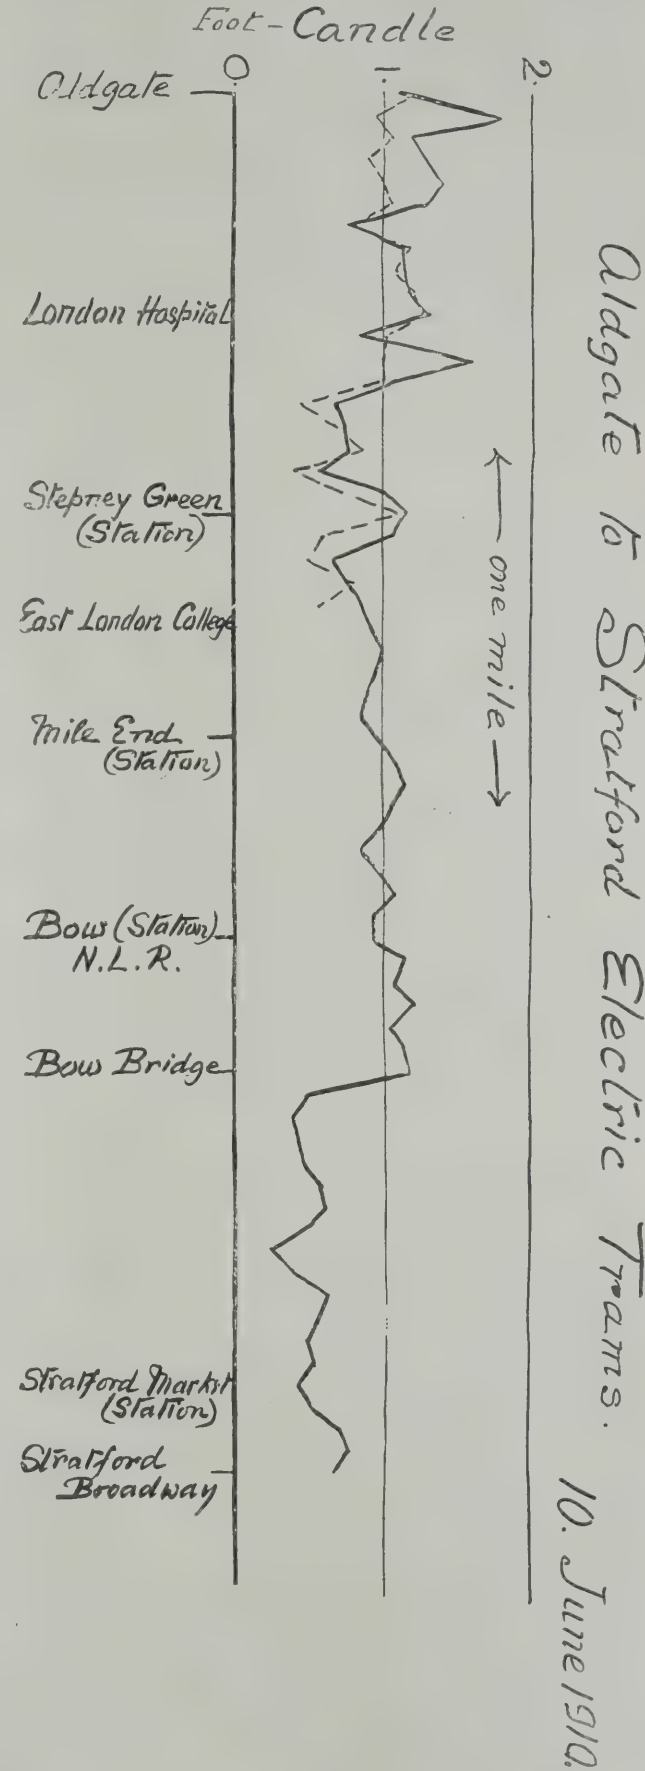 Foot-Candle
0. 1. 2.
Aldgate
London Hospital
Stepney Green
(Station)
East London College
Mile End
(Station)
Bow (Station)
N.L.R.
Bow Bridge
Stratford Market
(Station)
Stratford
Broadway
← one mile →
Aldgate to Stratford Electric Trams.
10. June 1910.